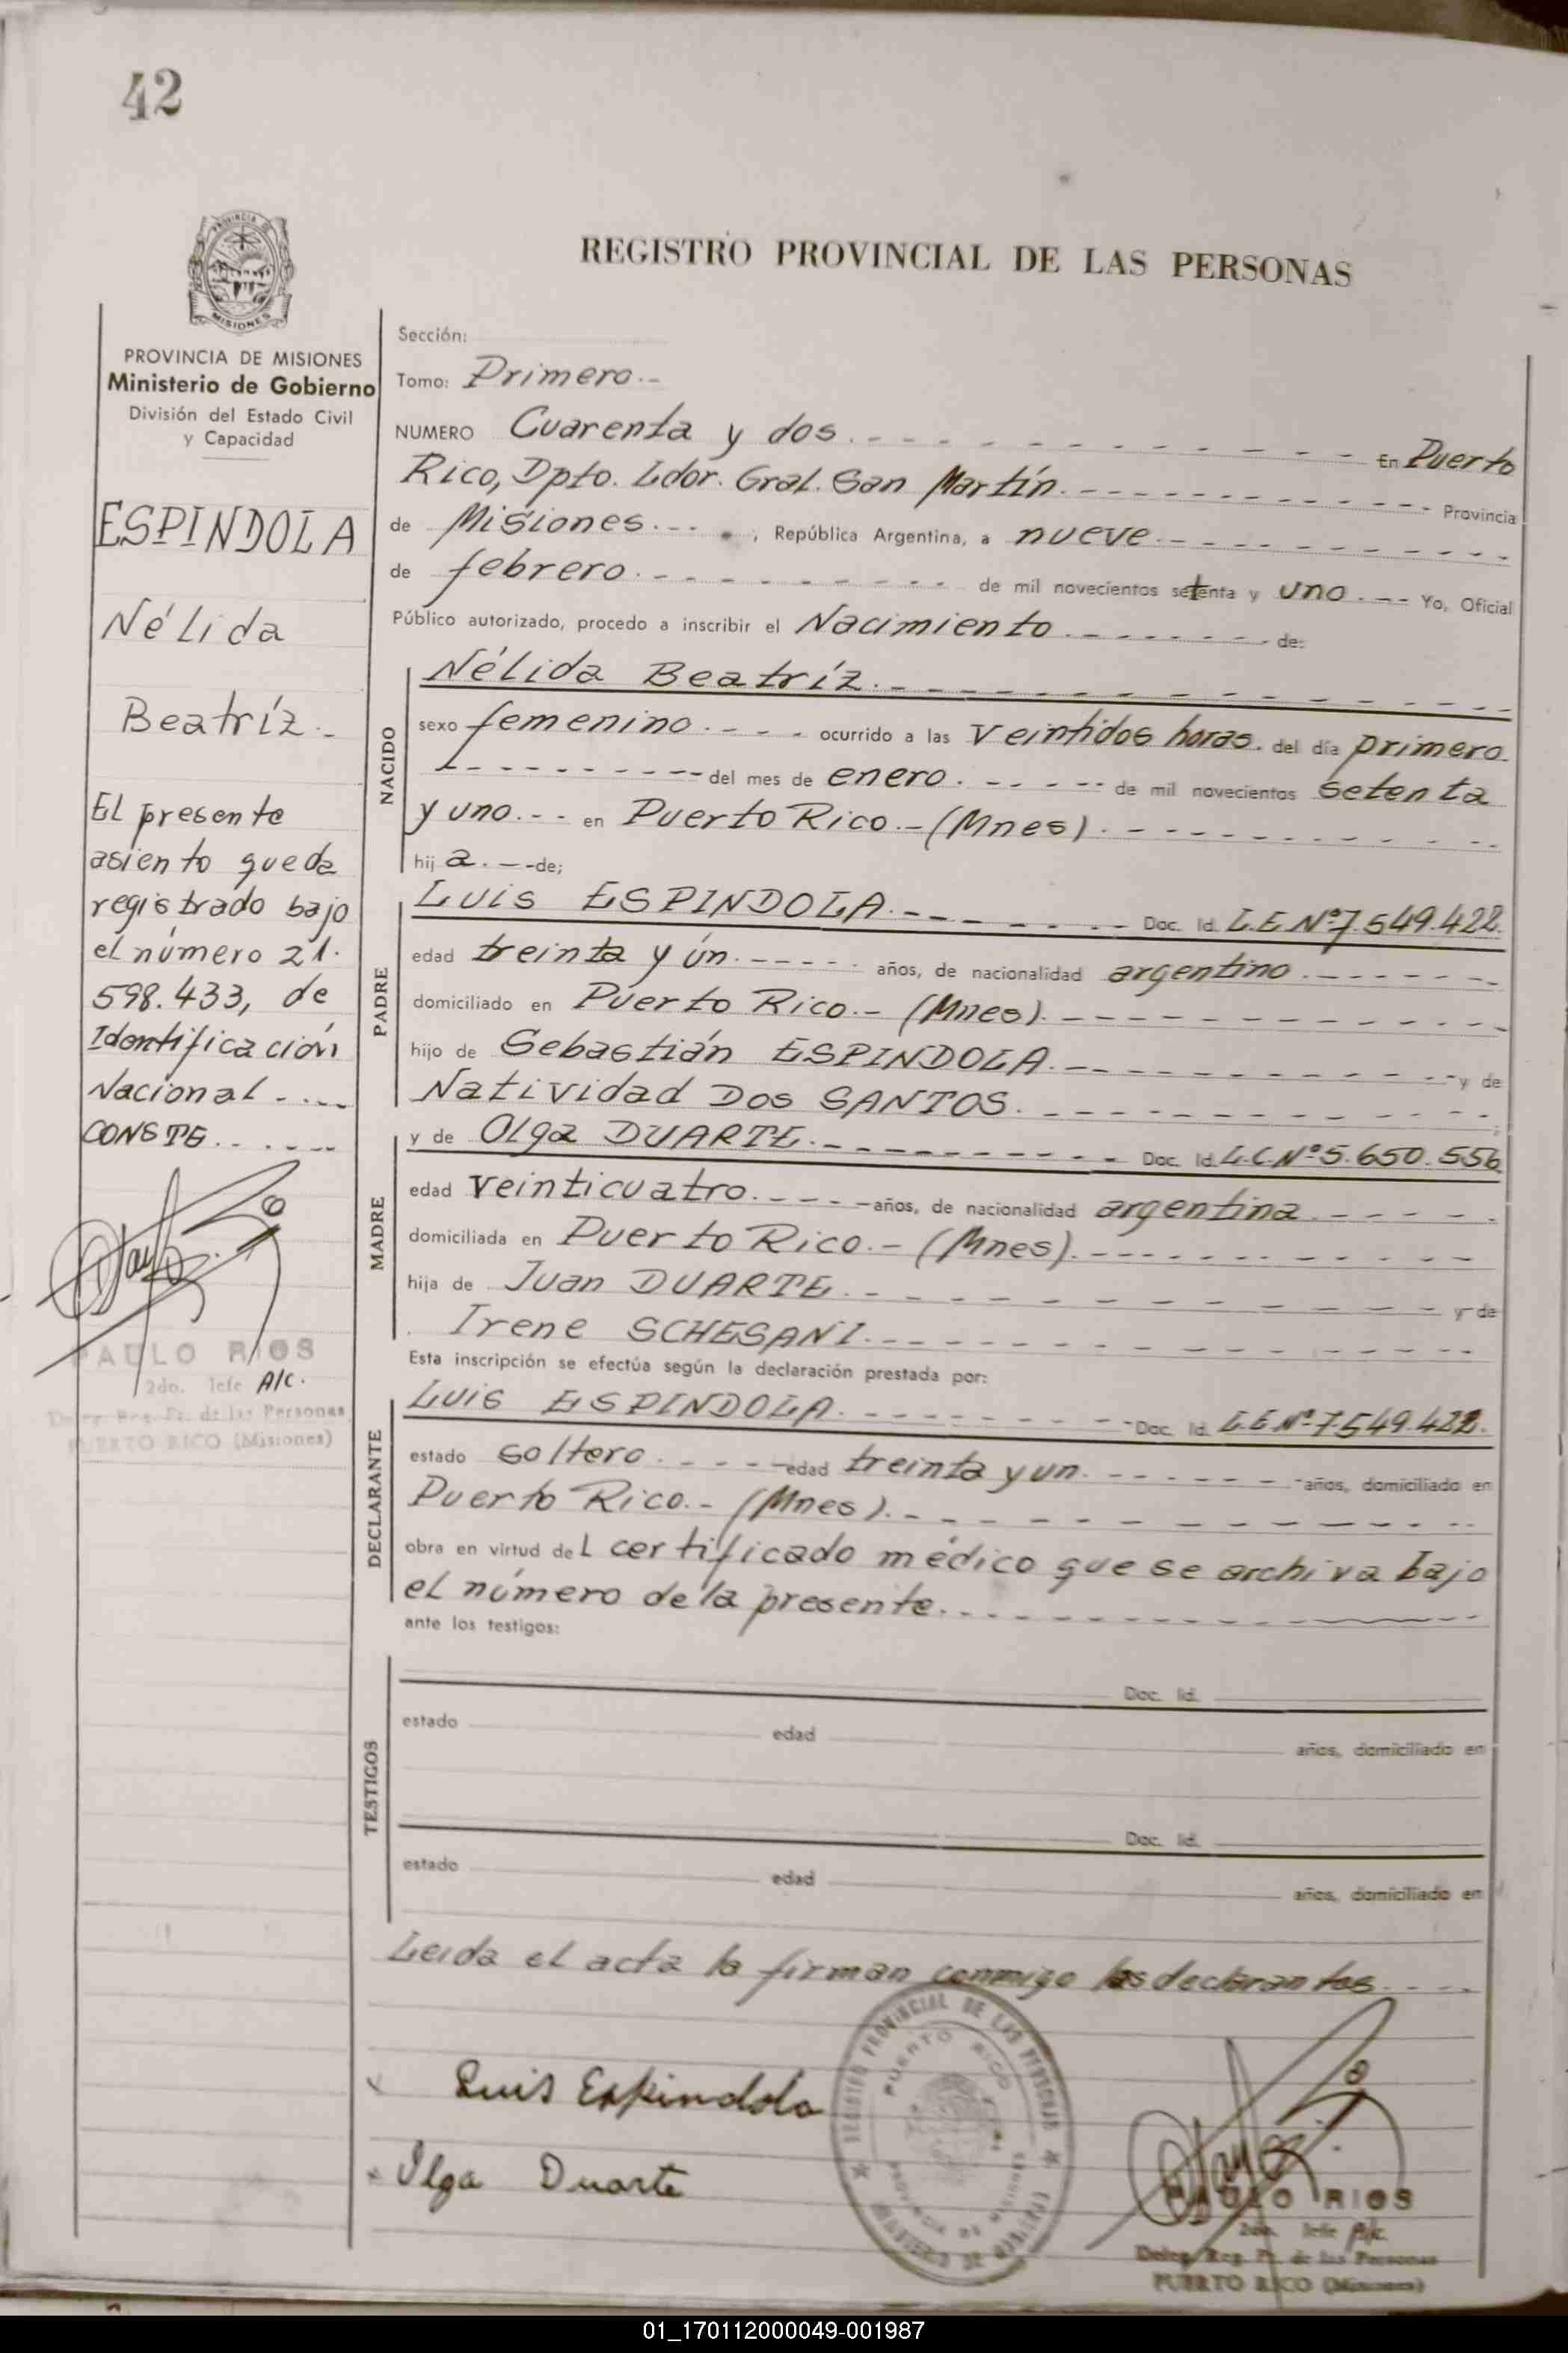 42
REGISTRO PROVINCIAL DE LAS PERSONAS
PROVINCIA DE MISIONES
Ministerio de Gobierno
División del Estado Civil
y Capacidad
ESPINDOLA
Nélida
Beatríz.-
El presente
asiento queda
registrado bajo
el número 21.
598.433, de
Identificación
Nacional.---
CONSTE.----
PAULO RIOS
2do. Jefe A/c.
Deleg. Reg. Pr. de las Personas
PUERTO RICO (Misiones)
Sección:
Tomo: Primero.-
NUMERO Cuarenta y dos.--------- En Puerto
Rico, Dpto. Ldor. Gral. San Martín.--------- Provincia
de Misiones.---, República Argentina, a nueve.---------
de febrero.--------- de mil novecientos setenta y uno.--- Yo, Oficial
Público autorizado, procedo a inscribir el Nacimiento.------- de:
NACIDO
Nélida Beatríz.---------
sexo femenino.---- ocurrido a las Veintidos horas. del día primero.
---------- del mes de enero.------ de mil novecientos setenta
y uno.--- en Puerto Rico.-(Mnes).---------
hij a.---de;
PADRE
Luis ESPINDOLA.------- Doc. Id. L.E.Nº7.549.422.
edad treinta y ún.------ años, de nacionalidad argentino.-------
domiciliado en Puerto Rico.- (Mnes).---------
hijo de Sebastián ESPINDOLA.--------- y de
Natividad DOS SANTOS.---------
MADRE
y de Olga DUARTE.--------- Doc. Id. L.C.Nº5.650.556
edad veinticuatro.-----años, de nacionalidad argentina.-----
domiciliada en Puerto Rico.- (Mnes).---------
hija de Juan DUARTE.--------- y de
Irene SCHESANI.---------
Esta inscripción se efectúa según la declaración prestada por:
DECLARANTE
Luis ESPINDOLA.---------Doc. Id. L.E.Nº7.549.422.
estado soltero.-----edad treinta y un.--------años, domiciliado en
Puerto Rico.- (Mnes).---------
obra en virtud del certificado médico que se archiva bajo
el número de la presente.---------
ante los testigos:
TESTIGOS
Doc. Id.
estado edad años, domiciliado en
Doc. Id.
estado edad años, domiciliado en
Leida el acta la firman conmigo los declarantes.----
REGISTRO PROVINCIAL DE LAS PERSONAS
PUERTO RICO
Luis Espindola
Olga Duarte
PAULO RIOS
2do. Jefe A/c.
Deleg. Reg. Pr. de las Personas
PUERTO RICO (Misiones)
01_170112000049-001987